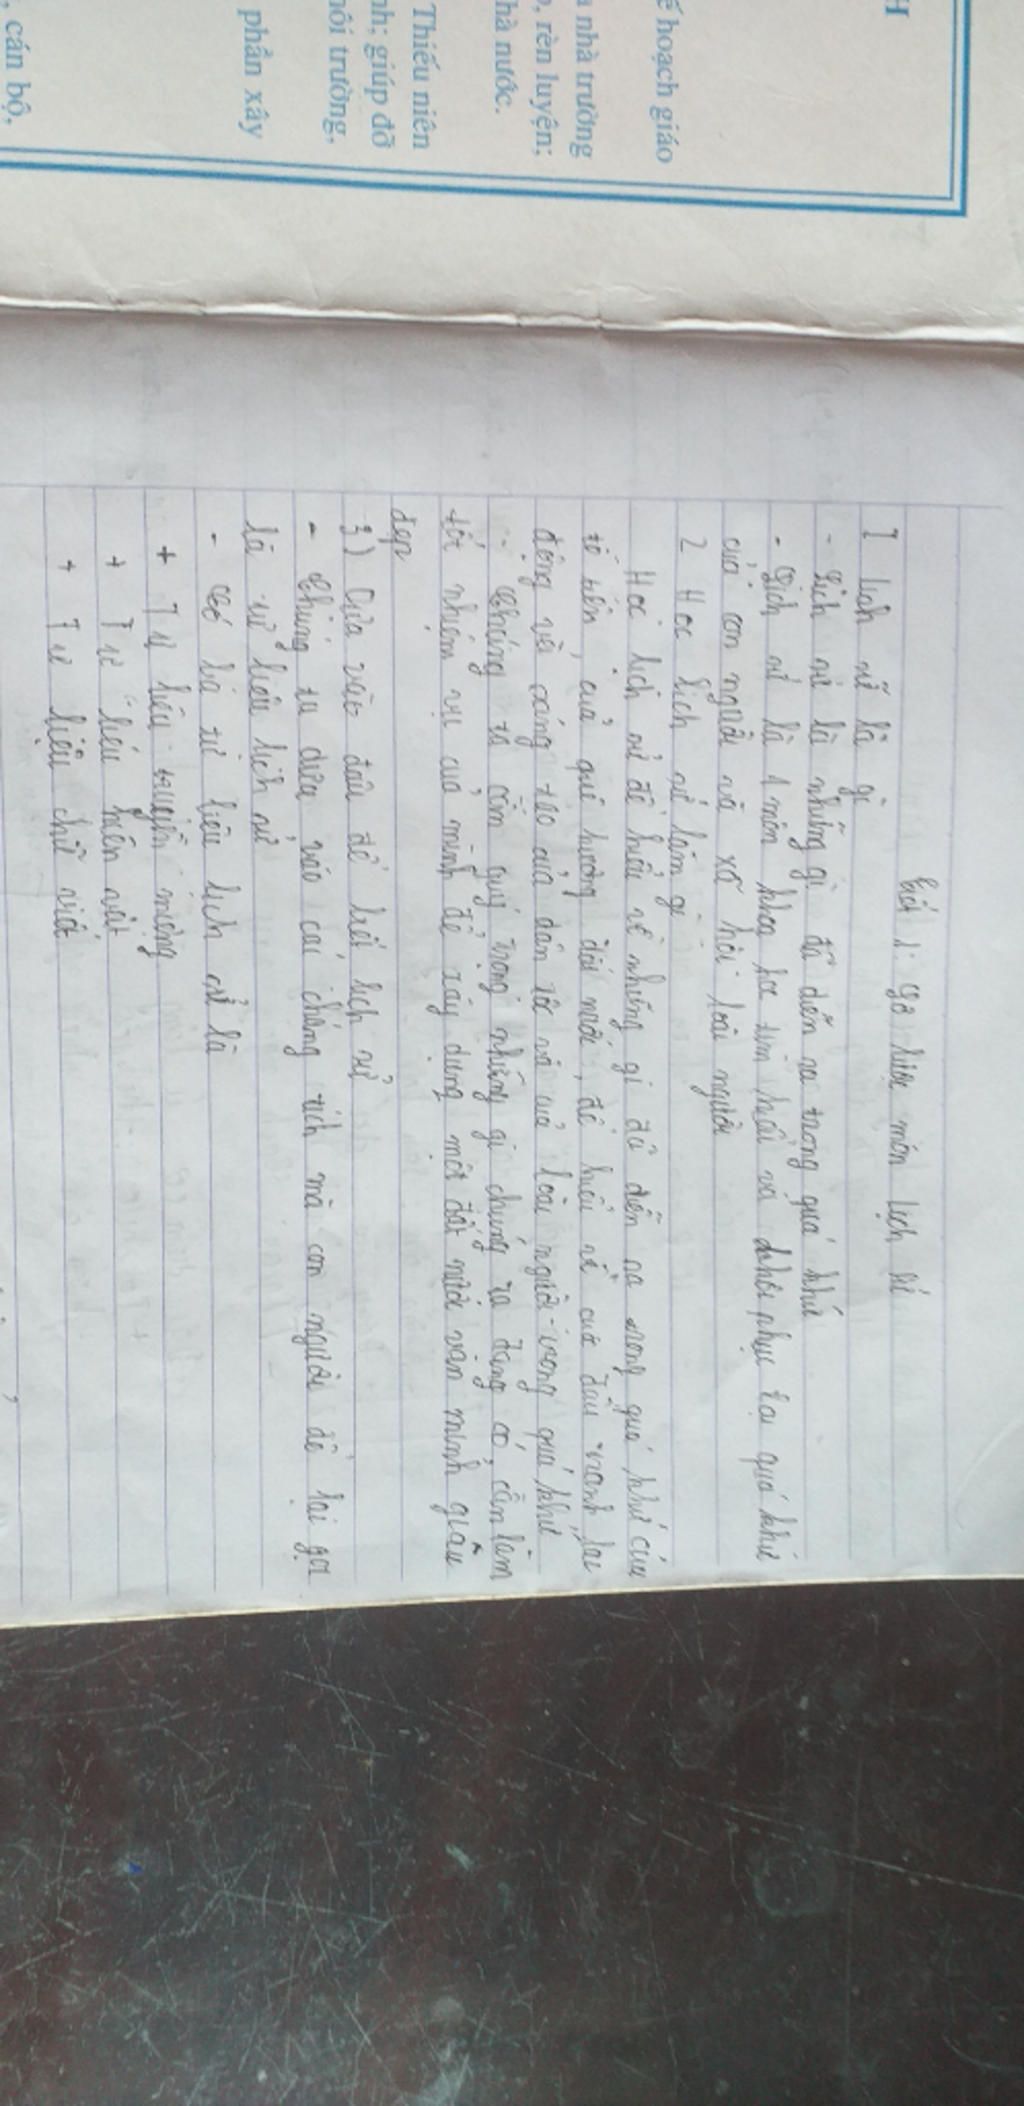 H
ế hoạch giáo
a nhà trường
, rèn luyện;
hà nước.
Thiếu niên
nh; giúp đỡ
nôi trường,
phần xây
, cán bộ,
Tiết 1: Sơ lược môn lịch sử
1 Lịch sử là gì
- Lịch sử là những gì đã diễn ra trong quá khứ
- Lịch sử là 1 môn khoa học tìm hiểu và khôi phục lại quá khứ
của con người và xã hội loài người
2 Học lịch sử làm gì
Học lịch sử để hiểu về những gì đã diễn ra trong quá khứ của
tổ tiên, của quê hương đất nước, để hiểu về cuộc đấu tranh, lao
động và sáng tạo của dân tộc và của loài người trong quá khứ
- Chúng ta cần quý trọng những gì chúng ta đang có, cần làm
tốt nhiệm vụ của mình để xây dựng một đất nước văn minh giàu
đẹp
3) Dựa vào đâu để biết lịch sử
- Chúng ta dựa vào các chứng tích mà con người để lại gọi
là tư liệu lịch sử
- Có ba tư liệu lịch sử là
+ Tư liệu truyền miệng
+ Tư liệu hiện vật
+ Tư liệu chữ viết